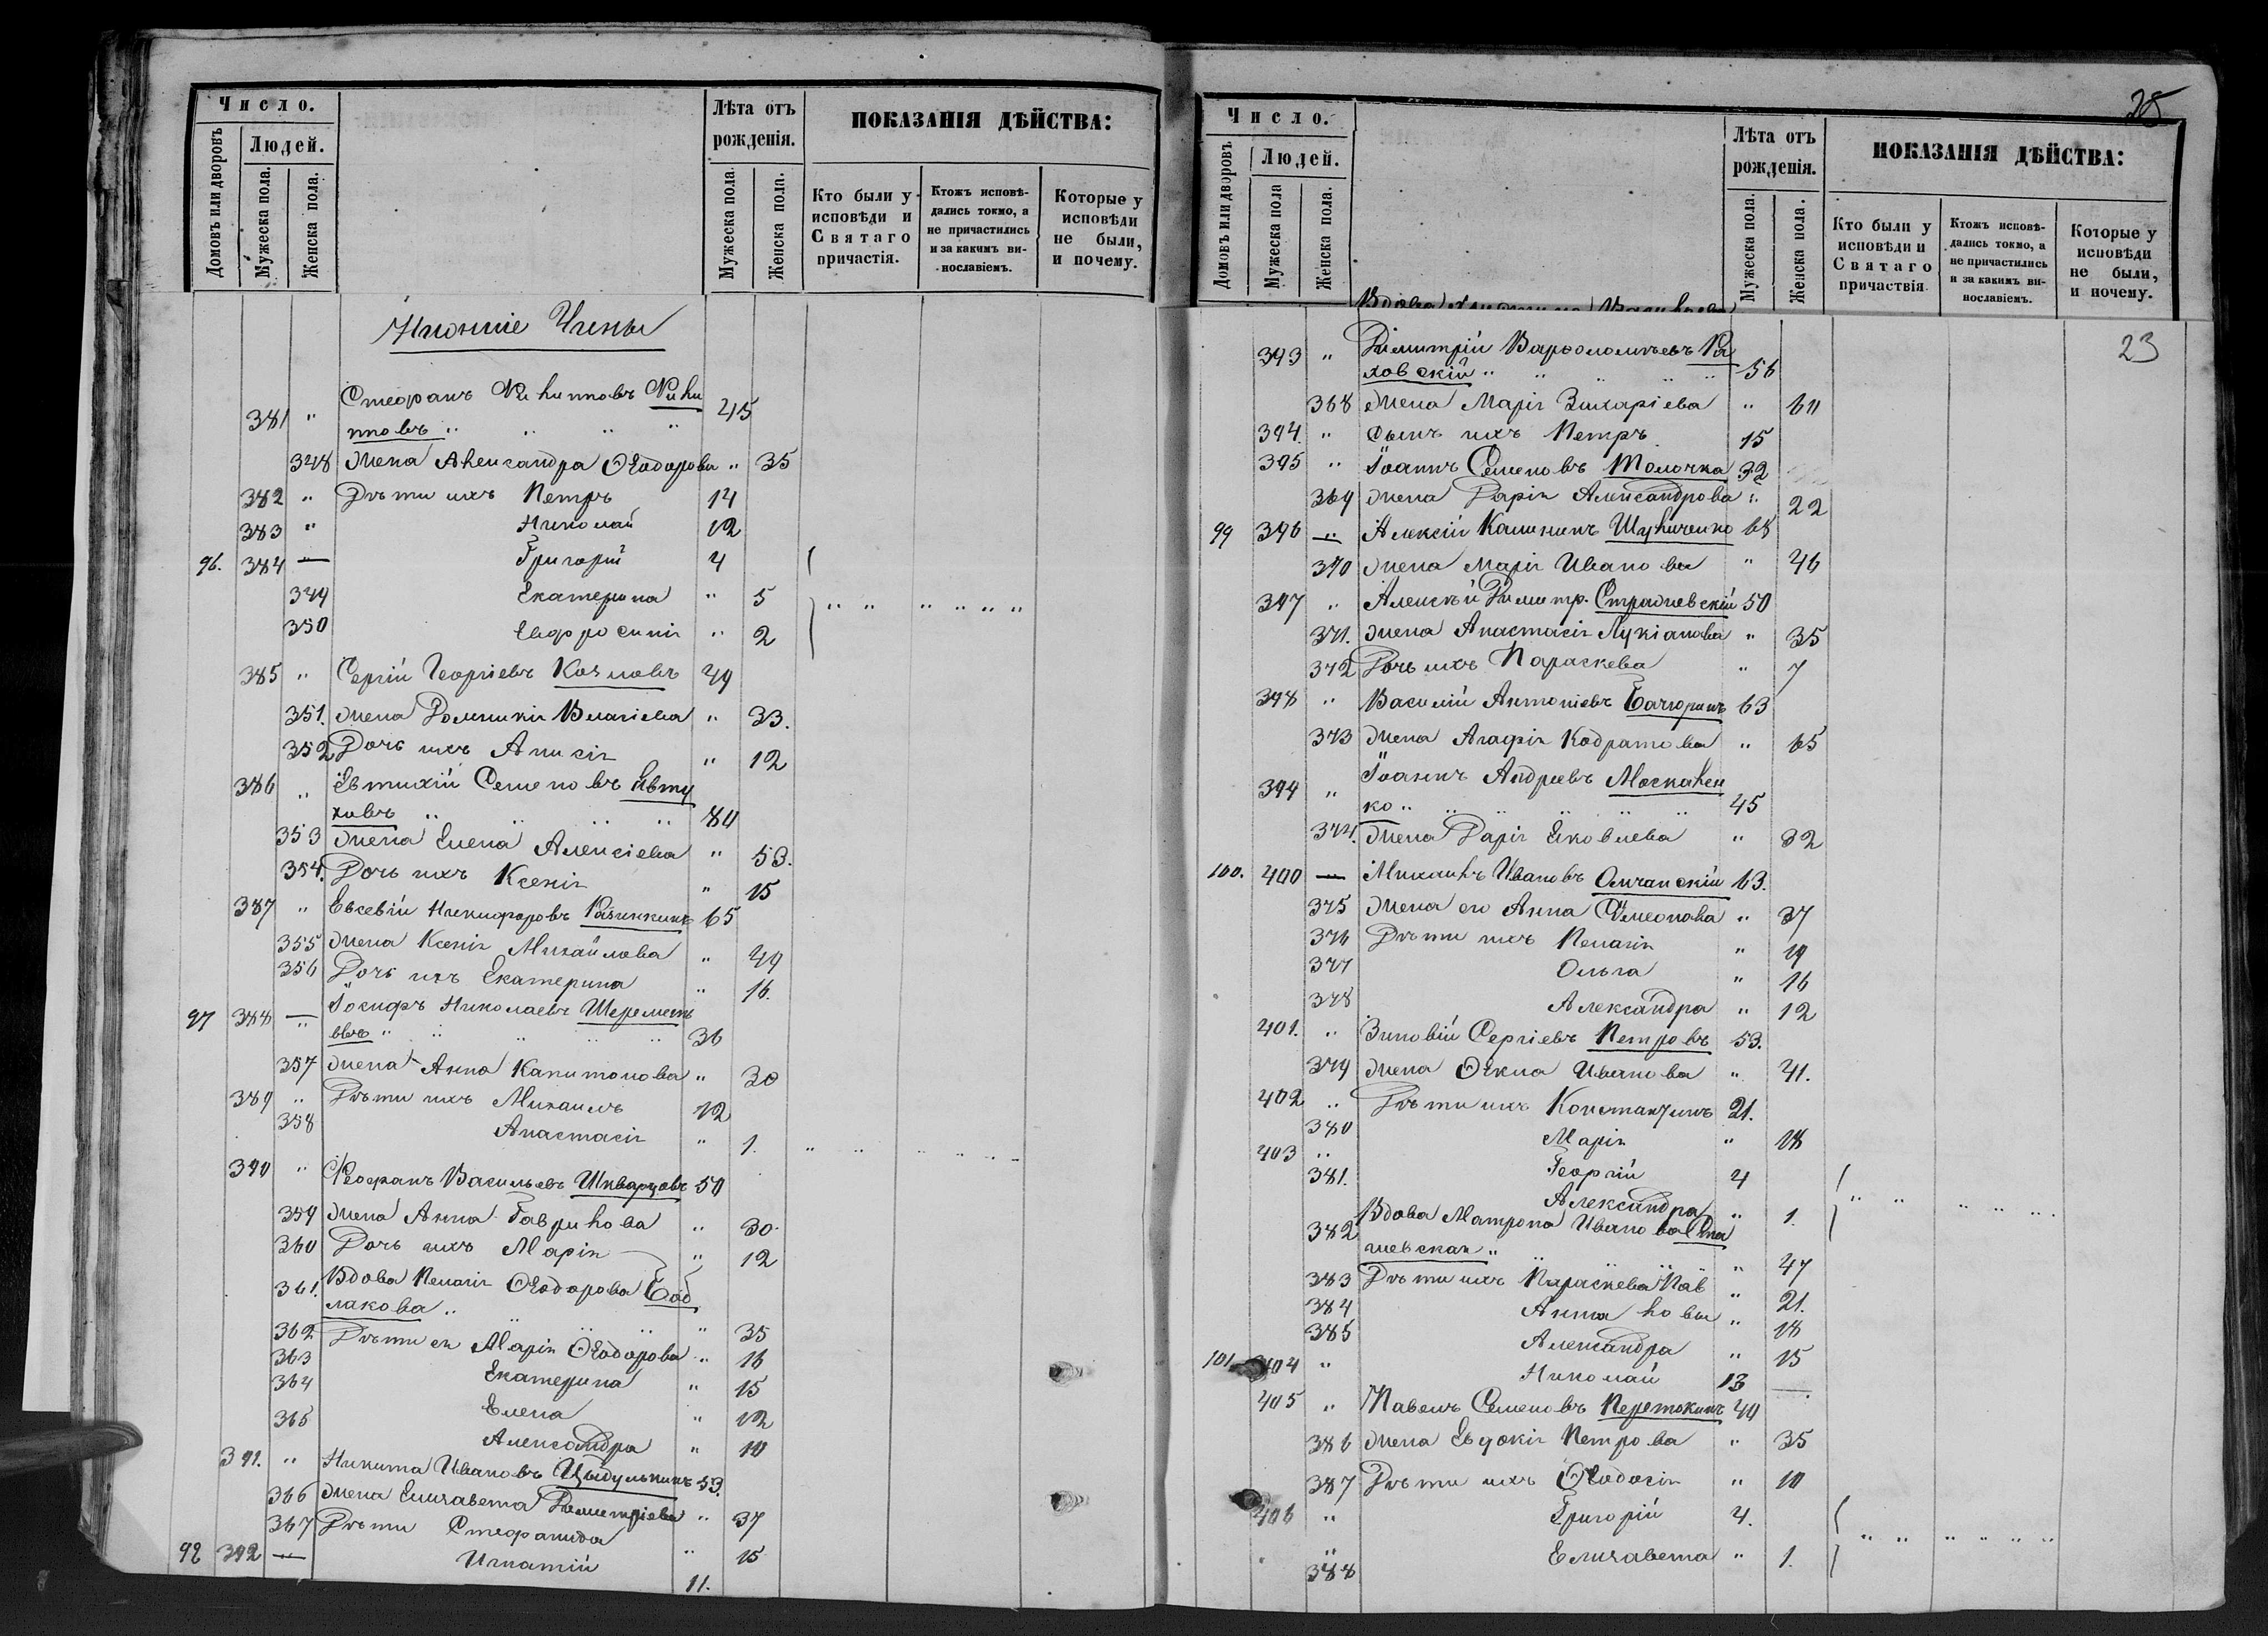 Число.
Домовъ или дворовъ
Людей.
Мужеска пола.
Женска пола.
Лѣта отъ рожденія.
Мужеска пола.
Женска пола.
ПОКАЗАНІЯ ДѢЙСТВА:
Кто были у исповѣди и Святаго причастія.
Ктожъ исповѣ-дались токмо, а не причастились и за какимъ ви-нославіемъ.
Которые у исповѣди не были, и почему.
Нижніе Чины
381 " Стефанъ Филипповъ Фили
пповъ " " " " 45
348 Жена Александра Ѳеодорова " 35
382 " Дѣти ихъ Петръ 14
383 " Николай 12
96. 384 — Григорій 4
349 Екатерина " 5 " " " " " "
350 Евфросинія " 2
385 " Сергій Георгіевъ Козловъ 49
351. Жена Домникія Власіева " 33.
352 Дочь ихъ Анисія " 12
386 " Евтихій Семеновъ Евту
ховъ " " " " 80
353 Жена Елена Алексіева " 53.
354. Дочь ихъ Ксенія " 15
387 " Евсевій Никифоровъ 65
355 Жена Ксенія Михайлова " 49
356 Дочь ихъ Екатерина " 16.
97 388 — Іосифъ Николаевъ Шереметь
евъ " " " " " 36
357 Жена Анна Капитонова " 30
389 " Дѣти ихъ Михаилъ 12
358 Анастасія " 1. " " " " " "
390 " Ѳеофанъ Васильевъ Шкварцовъ 50
359 Жена Анна Гаврилова " 30.
360 Дочь ихъ Марія " 12
361. Вдова Пелагія Ѳеодорова Бад
лакова " " " " 35
362 Дѣти ея Марія Ѳеодорова " 16
363 Екатерина " 15
364 Елена " 12
365 Александра " 10
391. " Никита Ивановъ Цыбулькинъ 53.
366 Жена Елисавета Димитріева " 37
367 Дѣти Стефанида " 15
98 392 — Игнатій 11.
28
Число.
Домовъ или дворовъ.
Людей.
Мужеска пола
Женска пола.
Лѣта отъ рожденія.
Мужеска пола.
Женска пола.
ПОКАЗАНІЯ ДѢЙСТВА:
Кто были у исповѣди и Святаго причастія
Ктожъ исповѣ-дались токмо, а не причастились и за какимъ ви-нославіемъ.
Которые у исповѣди не были, и почему.
23
393 " Димитрій Варѳоломѣевъ Ра
ковскій " " " " 56
368 Жена Марія Захаріева " 60
394. " Сынъ ихъ Петръ 15
395 " Іоаннъ Семеновъ Толочка 32
369 Жена Дарія Александрова " 22
99 396 — Алексій Калининъ Шуличенко 68
370 Жена Марія Иванова " 46
397 " Алексѣй Димитр. Страшевскій 50
371. Жена Анастасія Лукіанова " 35
372 Дочь ихъ Параскева " 7
398 " Василій Антоніевъ Бачуринъ 63
373 Жена Агафія Кодратова " 65
399 " Іоаннъ Андреевъ Москален
ко " " " " " 45
374. Жена Дарія Яковлева " 32
100. 400 — Михаилъ Ивановъ Олчанскій 63.
375 Жена его Анна Симеонова " 37
376 Дѣти ихъ Пелагія " 19
377 Ольга " 16
378 Александра " 12
401. " Зиновій Сергіевъ Петровъ 53.
379 Жена Ѳекла Иванова " 41.
402 " Дѣти ихъ Константинъ 21.
380 Марія " 18
403 " Георгій 4
381. Александра " 1. " " " " " "
382 Вдова Матрона Иванова
шевская " " " 47
383 Дѣти ихъ Параскева Пав " 21.
384 Анна лова " 18
385 Александра " 15
101 404 " Николай 13 —
405 " Павелъ Семеновъ Перетокинъ 40
386 Жена Евдокія Петрова " 35
387 Дѣти ихъ Ѳеодосія " 10
406 " Григорій 4. " " " " " "
388 Елисавета " 1.